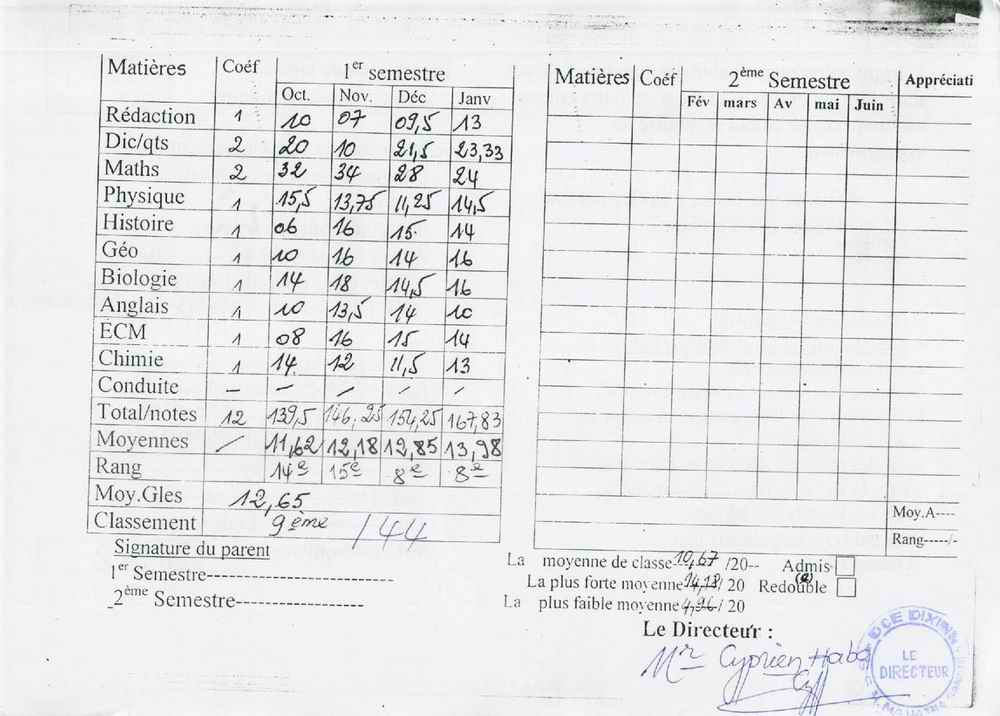 Matières Coéf 1er semestre
Oct. Nov. Déc Janv
Rédaction 1 10 07 09,5 13
Dic/qts 2 20 10 21,5 23,33
Maths 2 32 34 28 24
Physique 1 15,5 13,75 11,25 14,5
Histoire 1 06 16 15 14
Géo 1 10 16 14 16
Biologie 1 14 18 14,5 16
Anglais 1 10 13,5 14 10
ECM 1 08 16 15 14
Chimie 1 14 12 11,5 13
Conduite – – – – –
Total/notes 12 139,5 146,25 154,25 167,83
Moyennes / 11,62 12,18 12,85 13,98
Rang 14e 15e 8e 8e
Moy.Gles 12,65
Classement 9ème /44
Signature du parent
1er Semestre---------------------------
2ème Semestre-------------------
Matières Coéf 2ème Semestre Appréciati
Fév mars Av mai Juin
Moy.A----
Rang-----/-
La moyenne de classe 10,67 /20-- Admis
La plus forte moyenne 14,18/ 20 Redouble (e)
La plus faible moyenne 4,96/ 20
Le Directeur :
Mr Cyprien Haba
DCE DIXINN
LE
DIRECTEUR